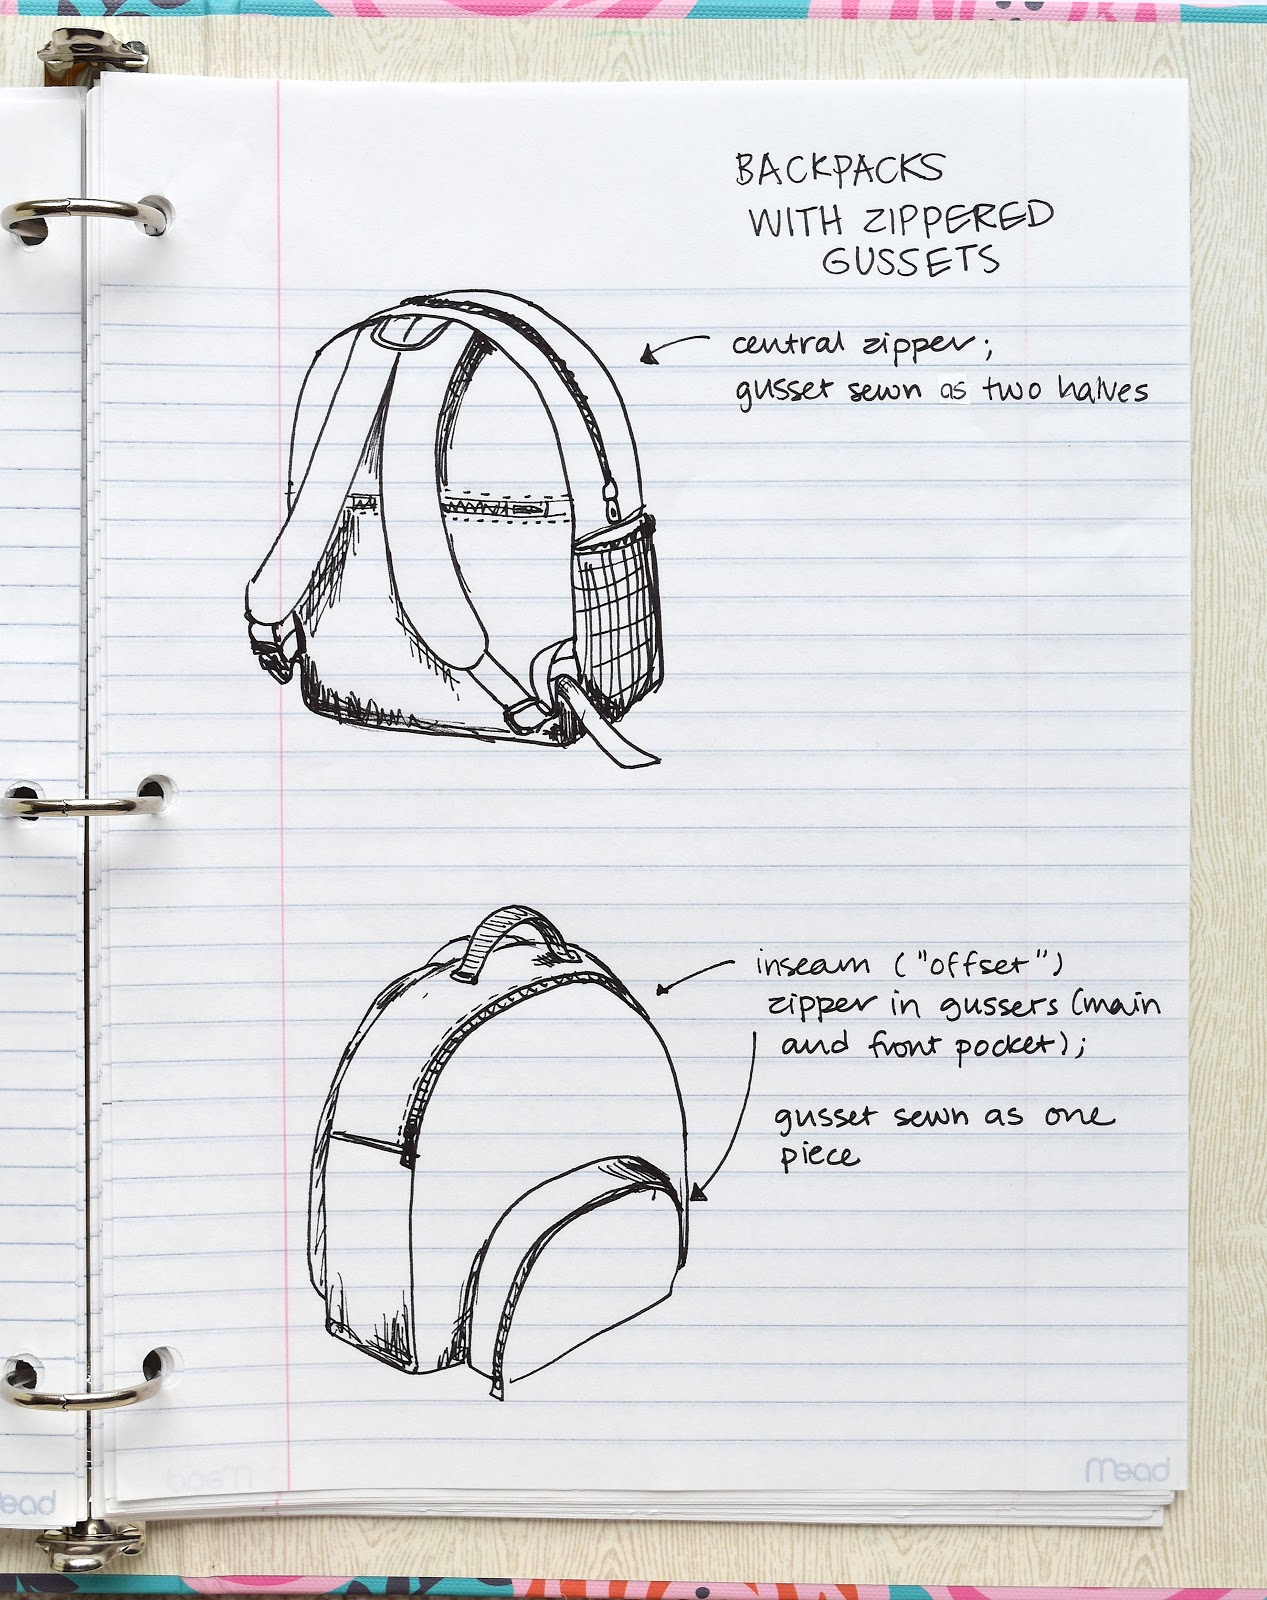 BACKPACKS
WITH ZIPPERED
GUSSETS
central zipper;
gusset sewn as two halves
inseam ("offset")
zipper in gussers (main
and front pocket);
gusset sewn as one
piece
Mead
ead